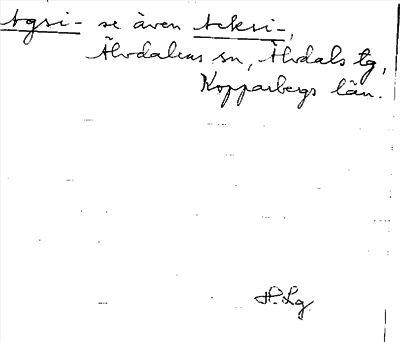 Agsi- se även Acksi-,
Älvdalens sn, Älvdals tg,
Kopparbergs län.
H. Lg.